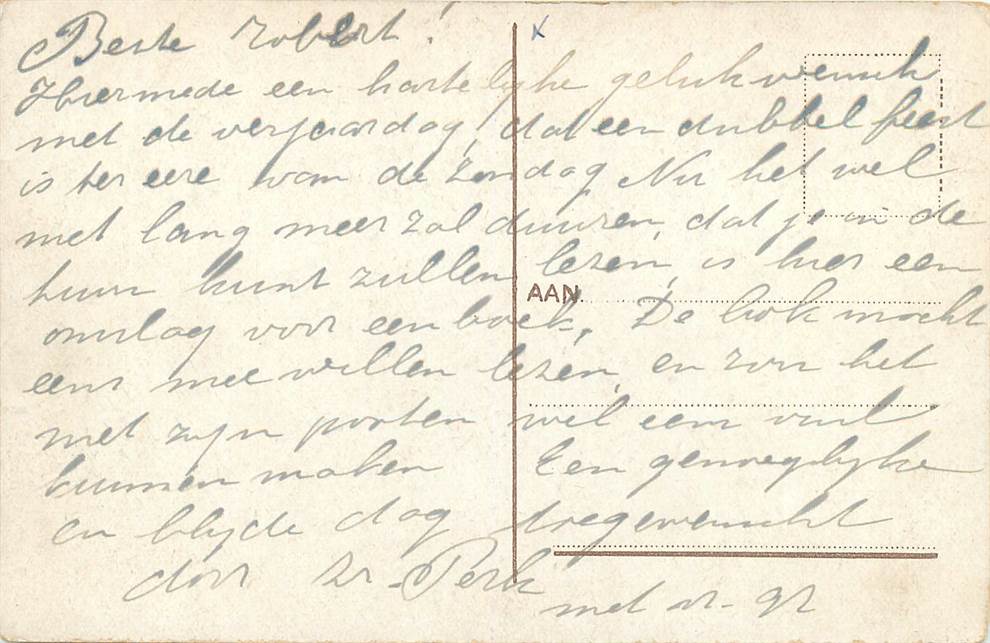 Beste Robert!
Hiermede een hartelijke gelukwensch
met de verjaardag, dat een dubbel feest
is ter eere van de Zondag Nu het wel
niet lang meer zal duuren, dat je in de
tuin kunt zullen lezen, is hier een
omslag voor een boek. De hok mocht
eens mee willen lezen, en zou het
met zijn pooten wel eens vuil
kunnen maken Een genoegelijke
en blijde dag toegewenscht
door zr. Perk
met
AAN